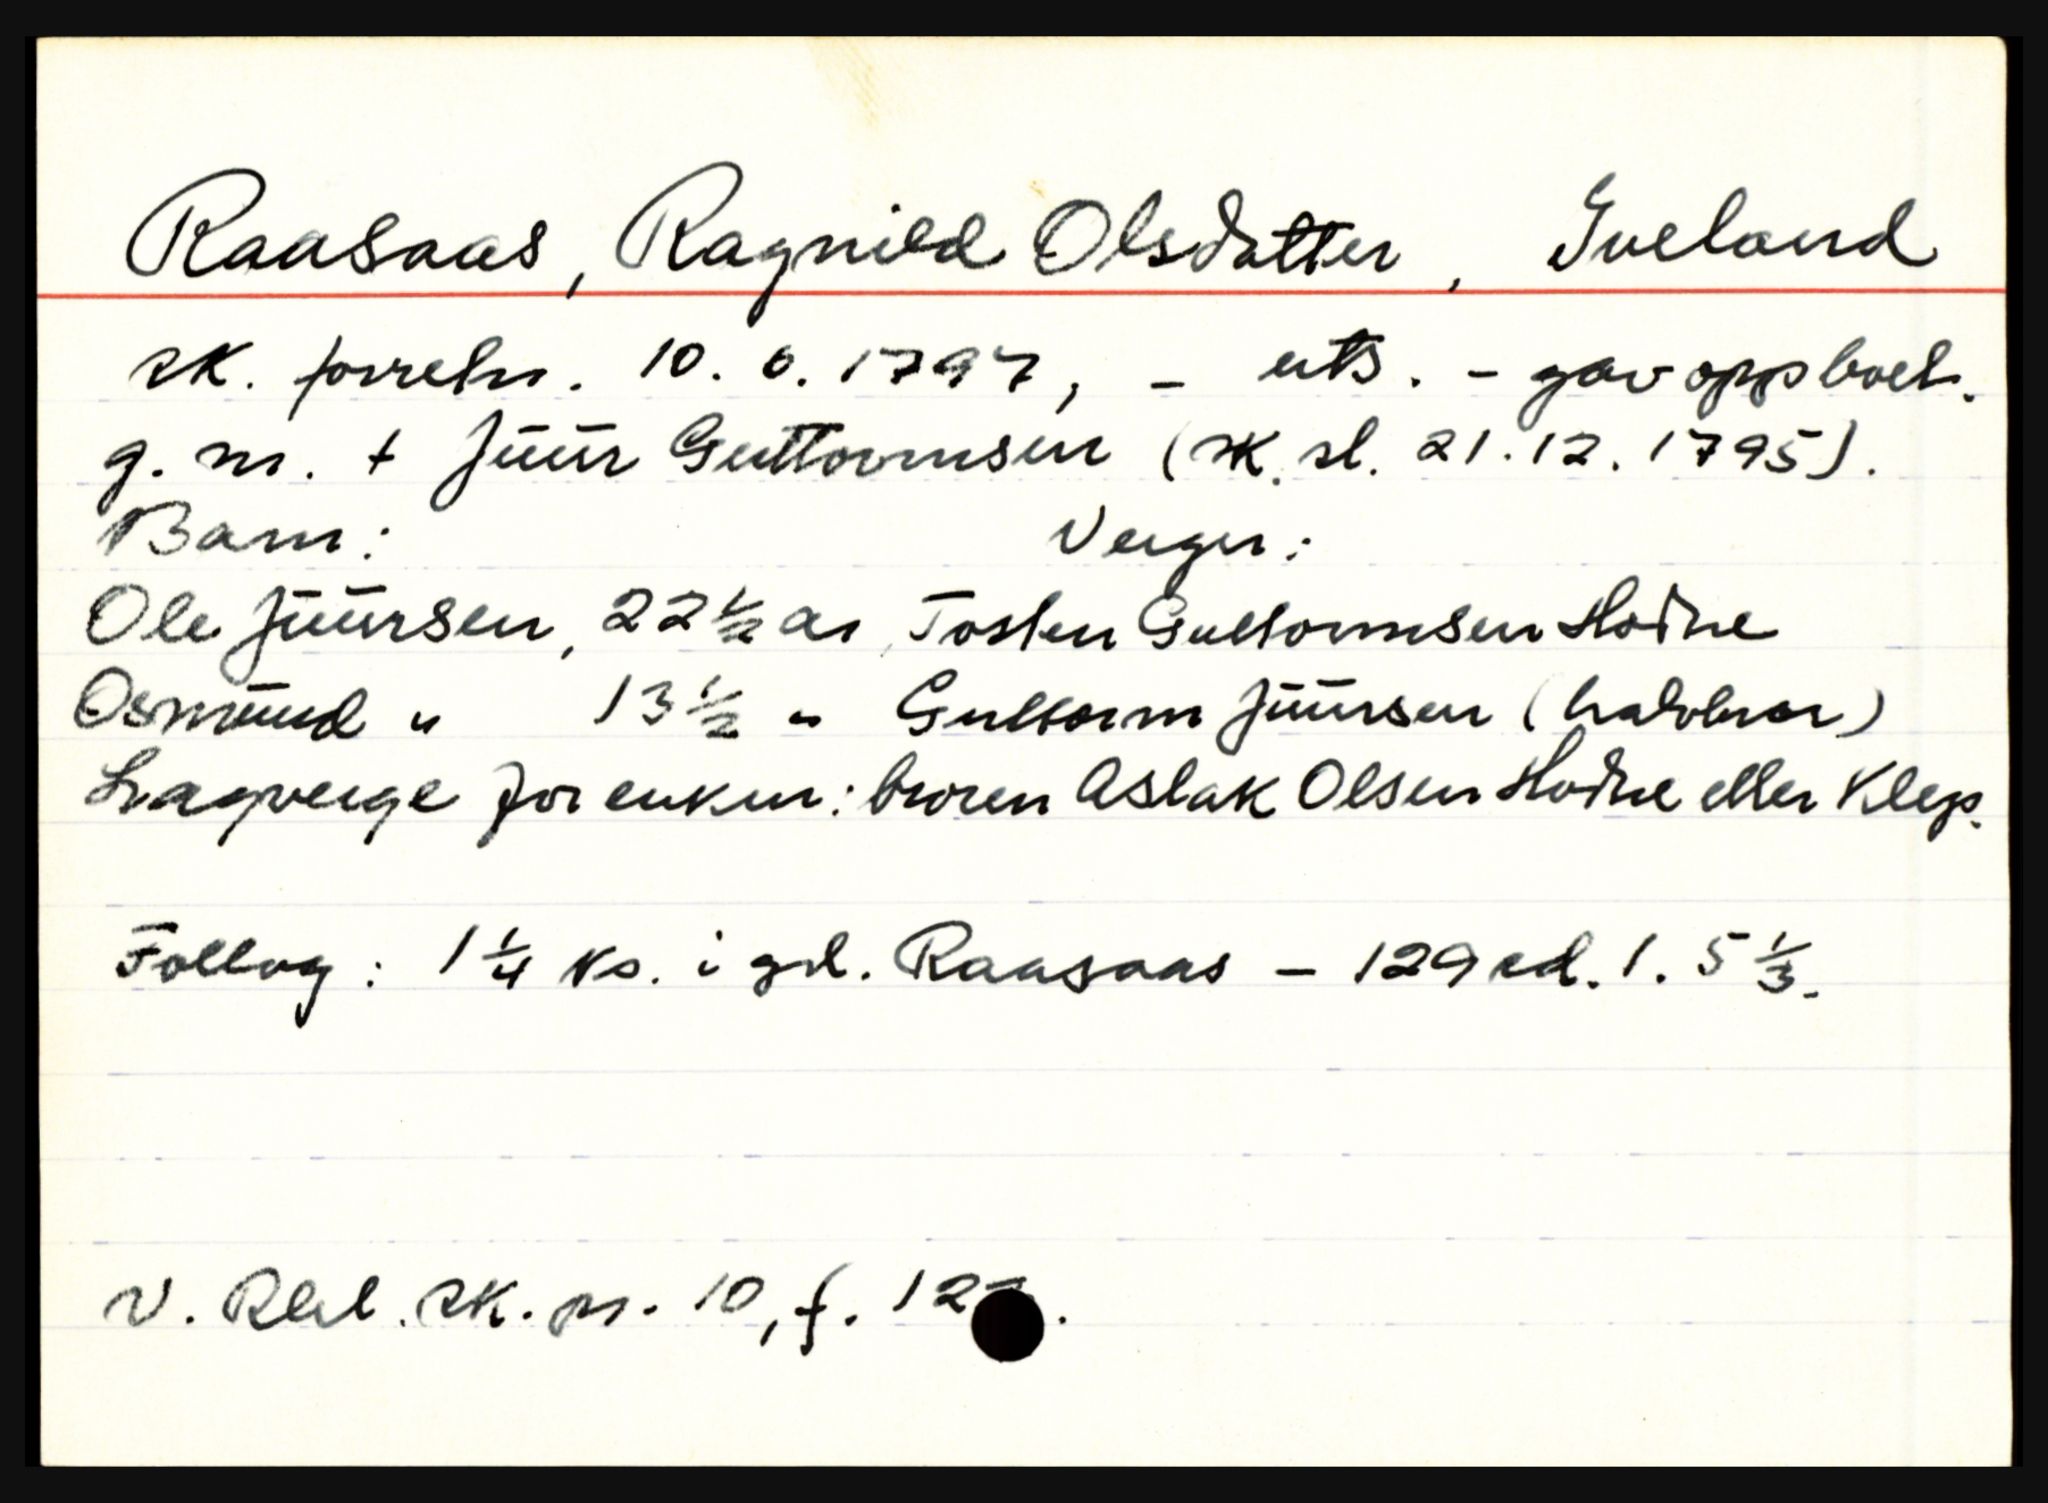 Raasaas, Ragnild Olsdatter, Iveland
sk. forretn. 10. 6. 1797, - uts. - gav opp boet.
g. m. + Juur Guttormsen (sk. sl. 21. 12. 1795).
Barn: Verger:
Ole Juursen, 22 1/2 år, Tosten Guttormsen Hodne
Osmund " 13 1/2 " Guttorm Juursen (halvbror)
Lagverge for enken: broren Aslak Olsen Hodne eller Klep.
Follug: 1 1/4 ks. i gd. Raasaas - 129 rd. 1. 5 1/3.
V. Rbd. sk. pr. 10, f. 12